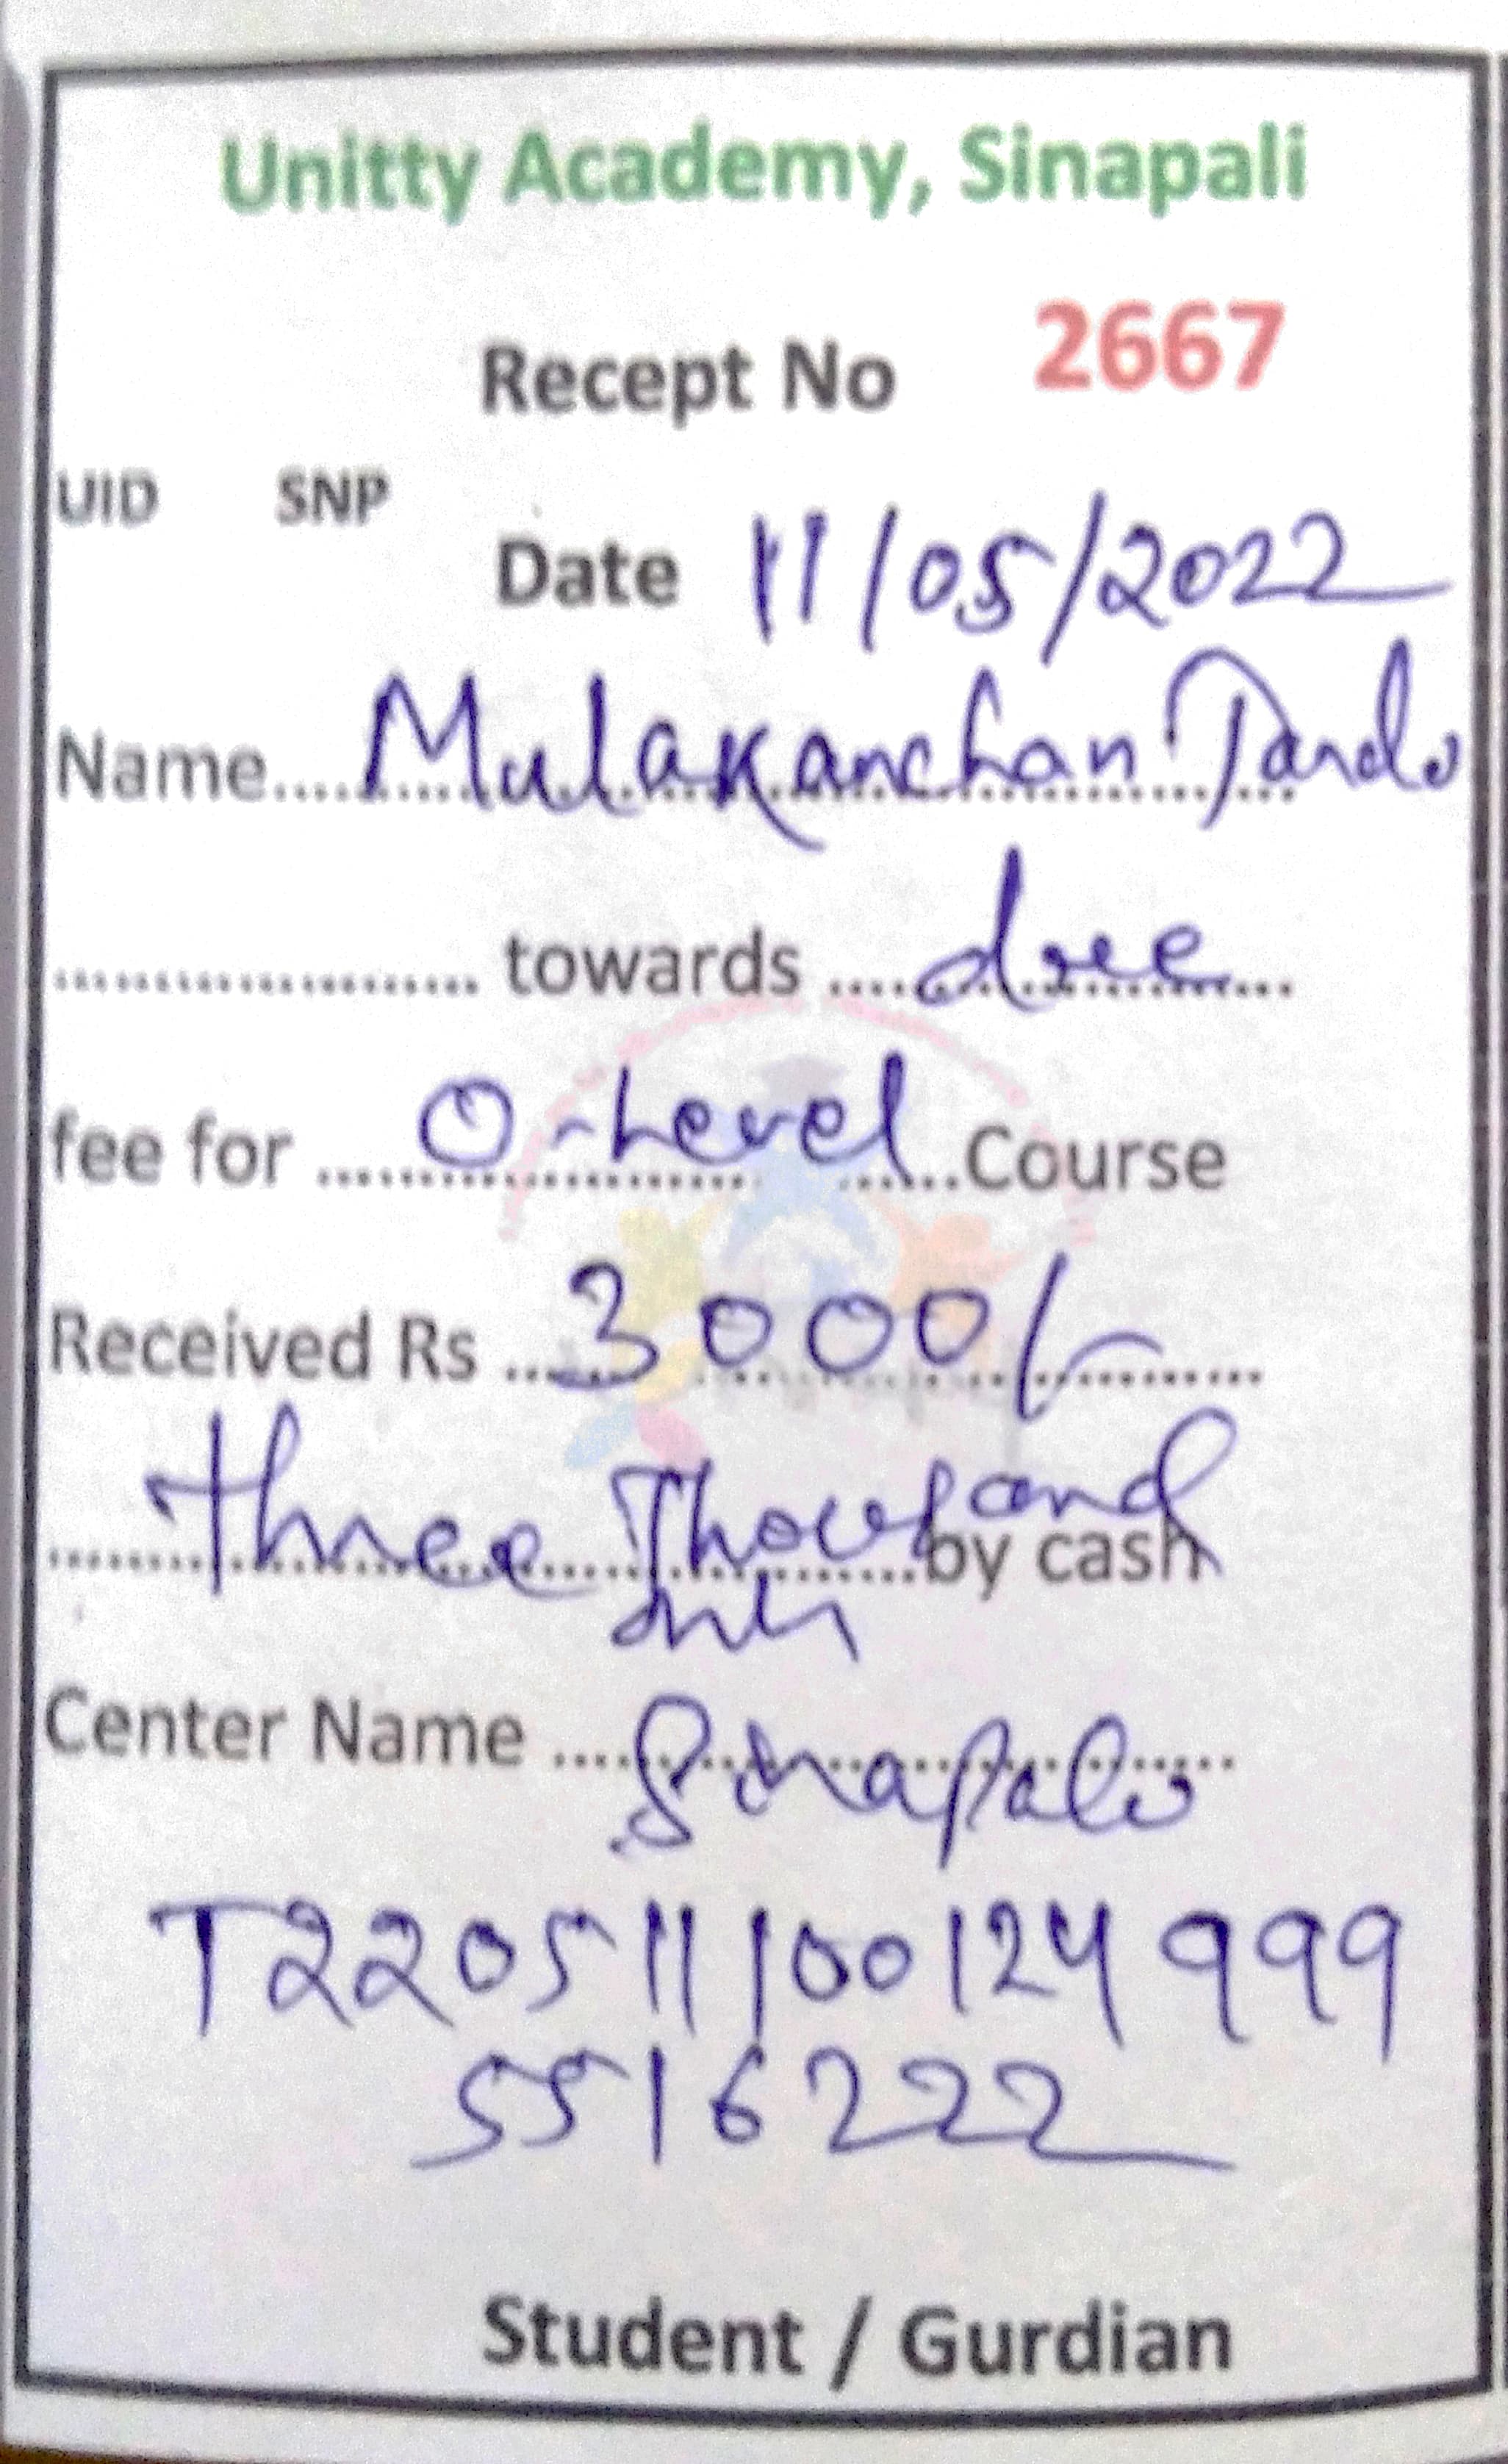 Unitty Academy, Sinapali
Recept No 2667
UID SNP
Date 11/05/2022
Name.... Mulakanchan Tandi
.................... towards .... due
fee for .... O-Level ....Course
Received Rs .... 3000/-
three Thousand by cash
only
Center Name .... Sinapali
T220511100124999
5516222
Student / Gurdian